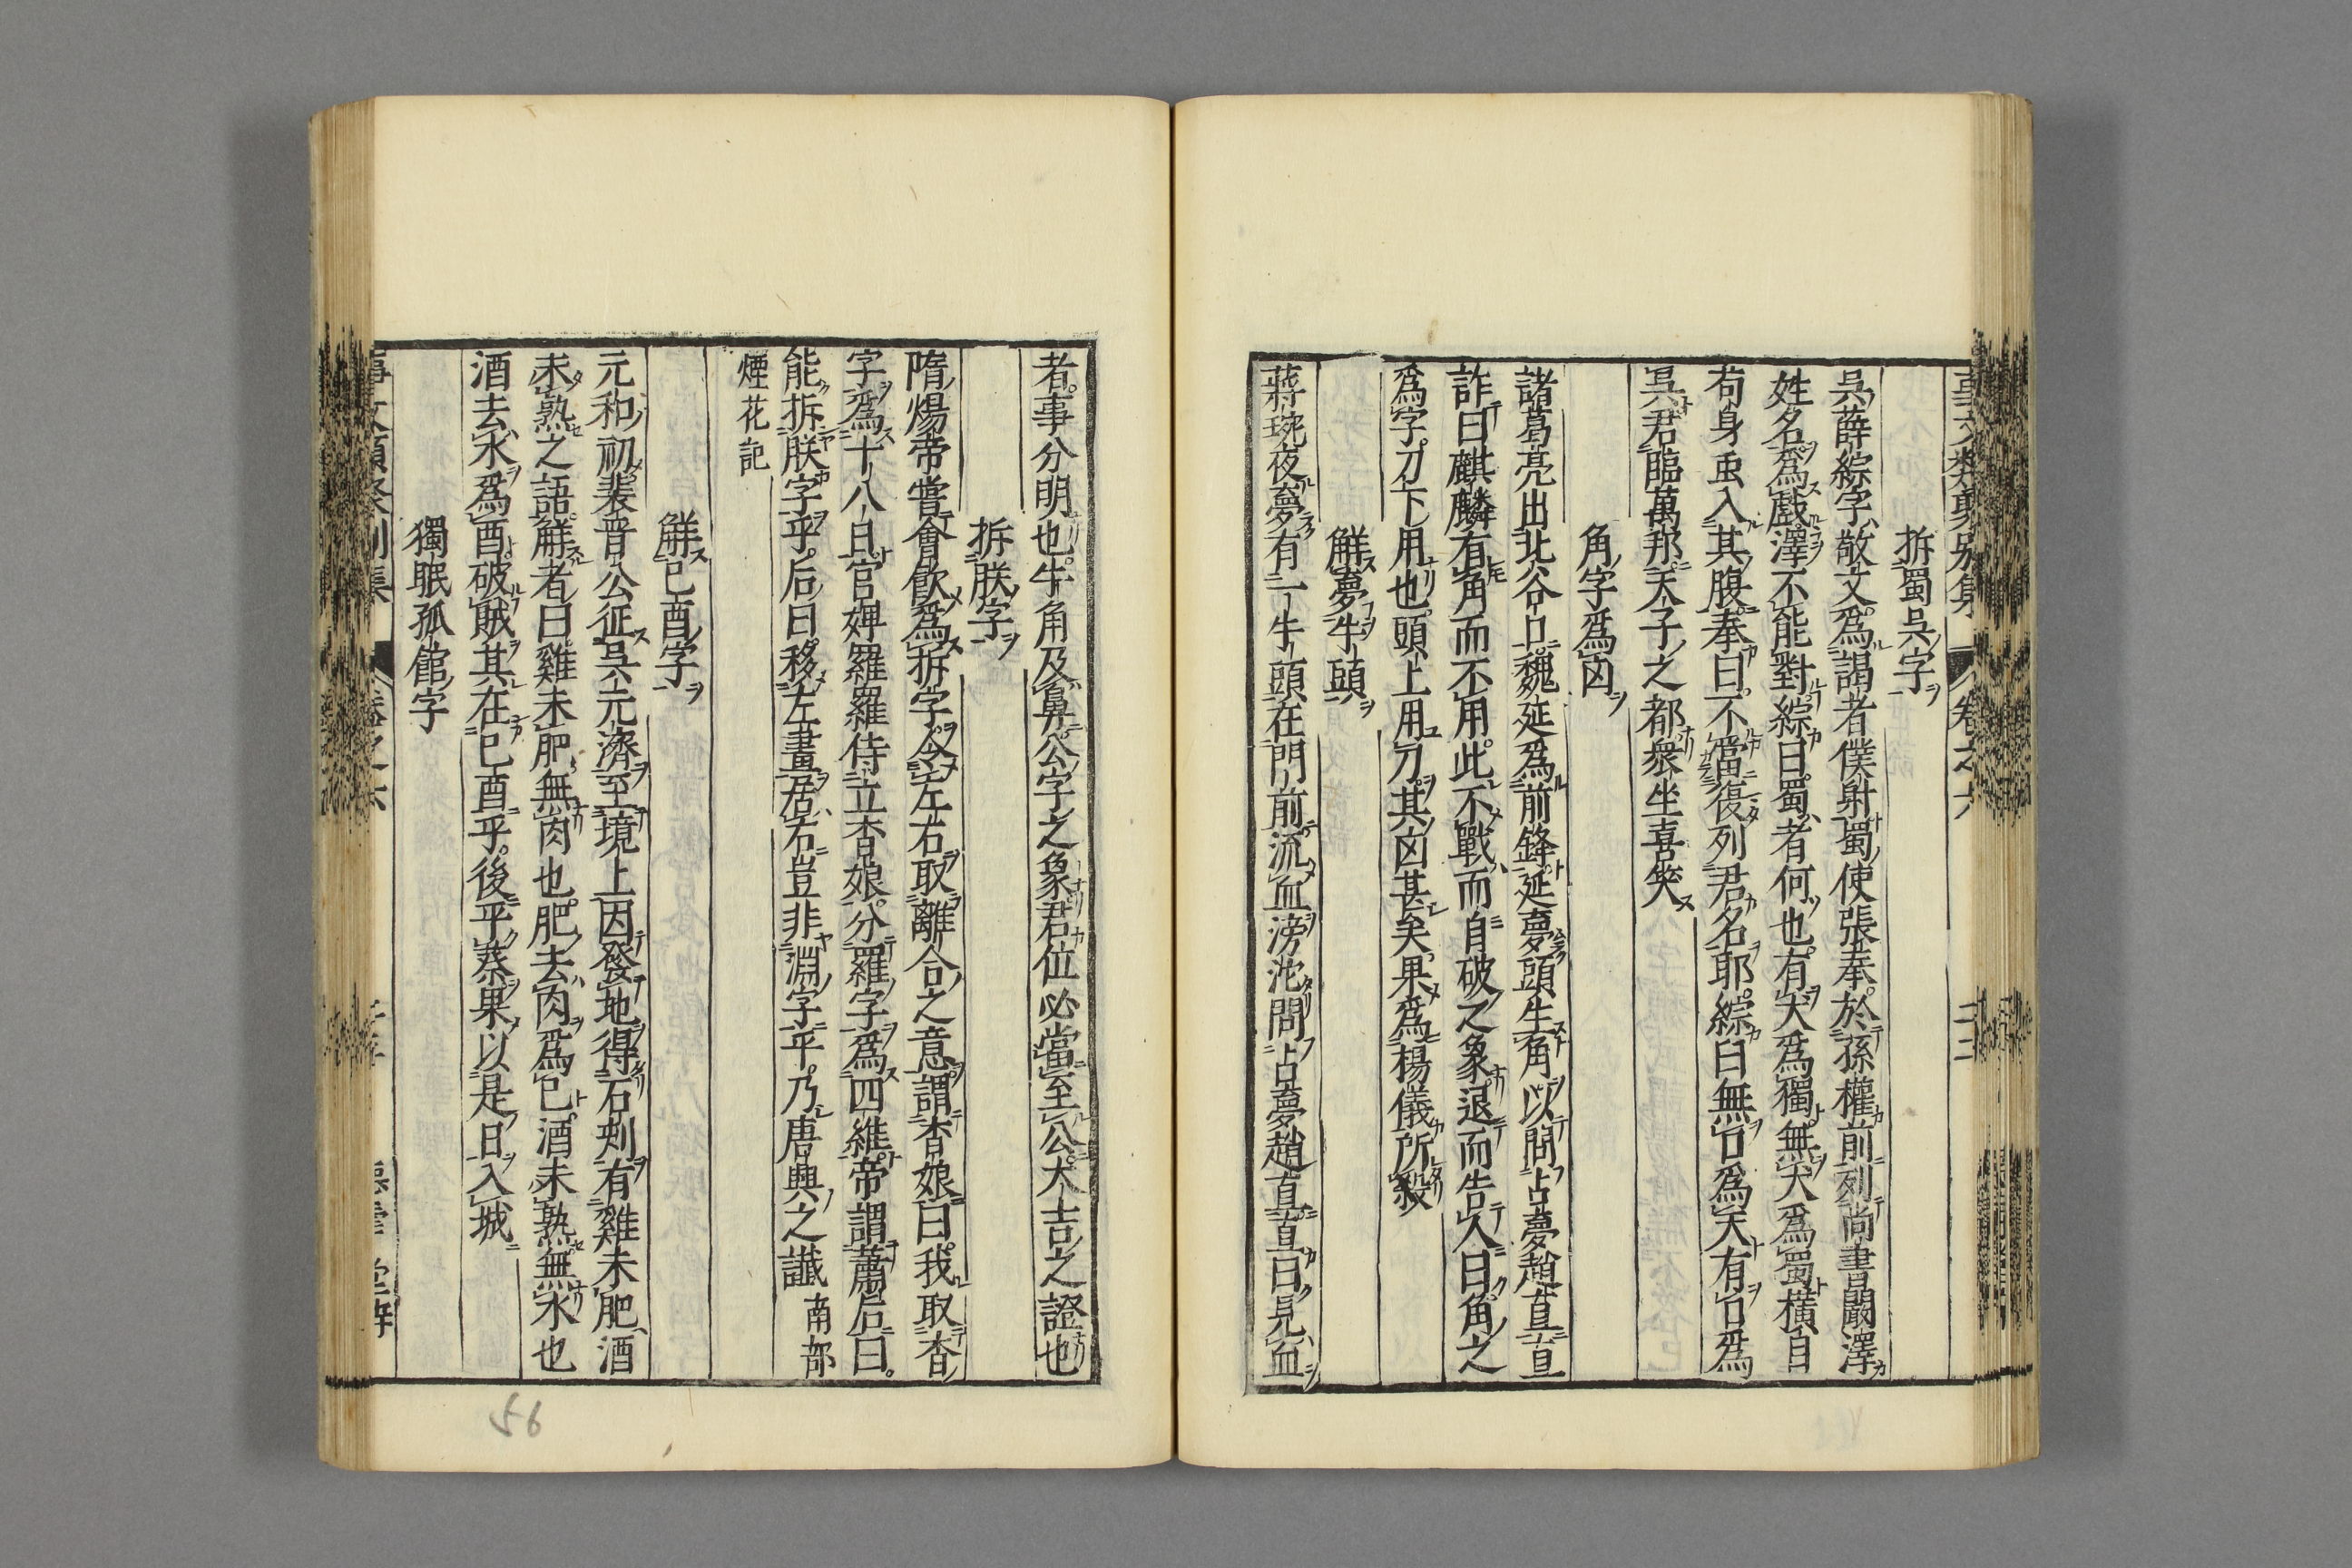 事文類聚別集 卷之六
拆蜀吳字
吳薛綜字敬文爲謁者僕射蜀使張奉於孫權前列尚書闞澤
姓名爲戲澤不能對綜曰蜀者何也有犬爲獨無犬爲蜀橫自
苟身虫入其腹奉曰不當復列君名耶綜曰無口爲天有口爲
吳君臨萬邦天子之都衆坐喜笑
角字爲凶
諸葛亮出北谷口魏延爲前鋒延夢頭生角以問占夢趙直直
詐曰麒麟有角而不用此不戰而自破之象退而告人曰角之
爲字刀下用也頭上用刀其凶甚矣果爲楊儀所殺
解夢牛頭
蔣琬夜夢有一牛頭在門前流血滂沱問占夢趙直直曰見血
者事分明也牛角及鼻公字之象君位必當至公大吉之證也
拆朕字
隋煬帝嘗會飮爲拆字令左右取離合之意謂杳娘曰我取杳
字爲十八日宮婢羅羅侍立杳娘分羅字爲四維帝謂蕭后曰
能拆朕字乎后曰移左畫居右豈非淵字乎乃唐興之讖 南部
煙花記
解己酉字
元和初裴晉公征吳元濟至境上因發地得石刻有雞未肥酒
未熟之語解者曰雞未肥無肉也肥去肉爲己酒未熟無水也
酒去水爲酉破賊其在己酉乎後平蔡果以是日入城
獨眠孤館字
事文類聚別集 卷之六